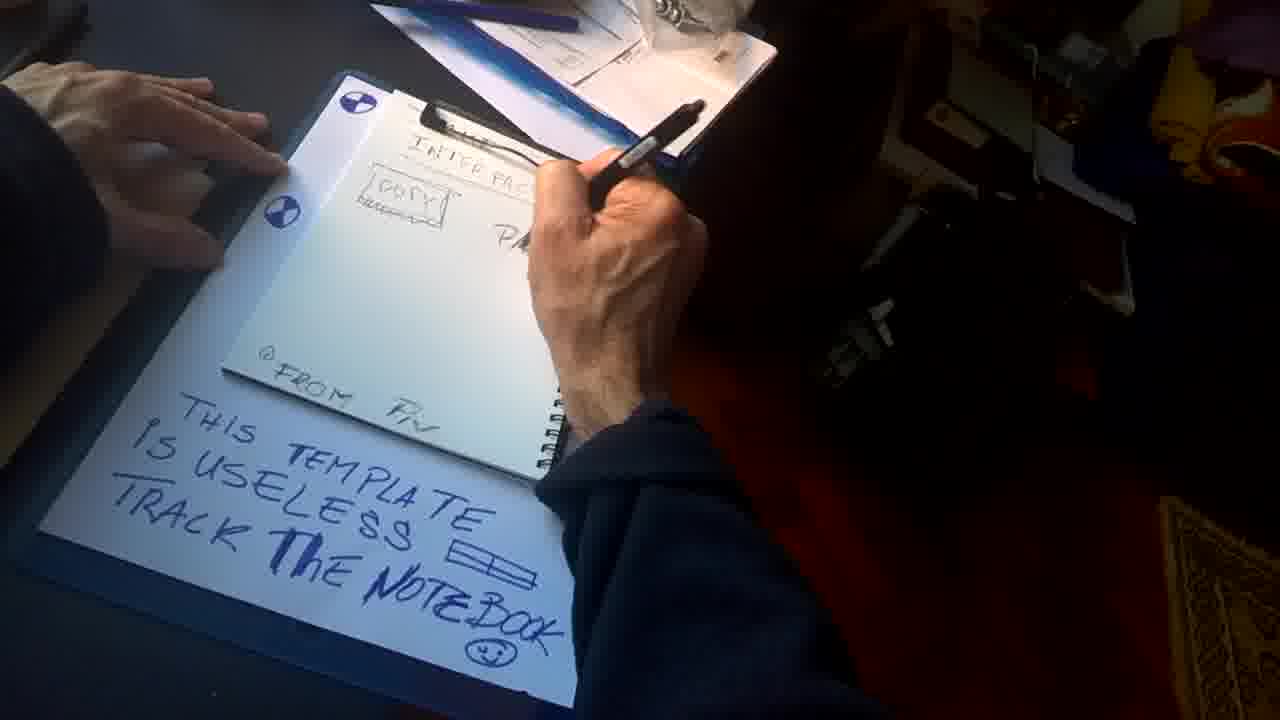 INTERFAC
COPY
PA
FROM Piv
THIS TEMPLATE
iS USELESS
TRACK THE NOTEBOOK